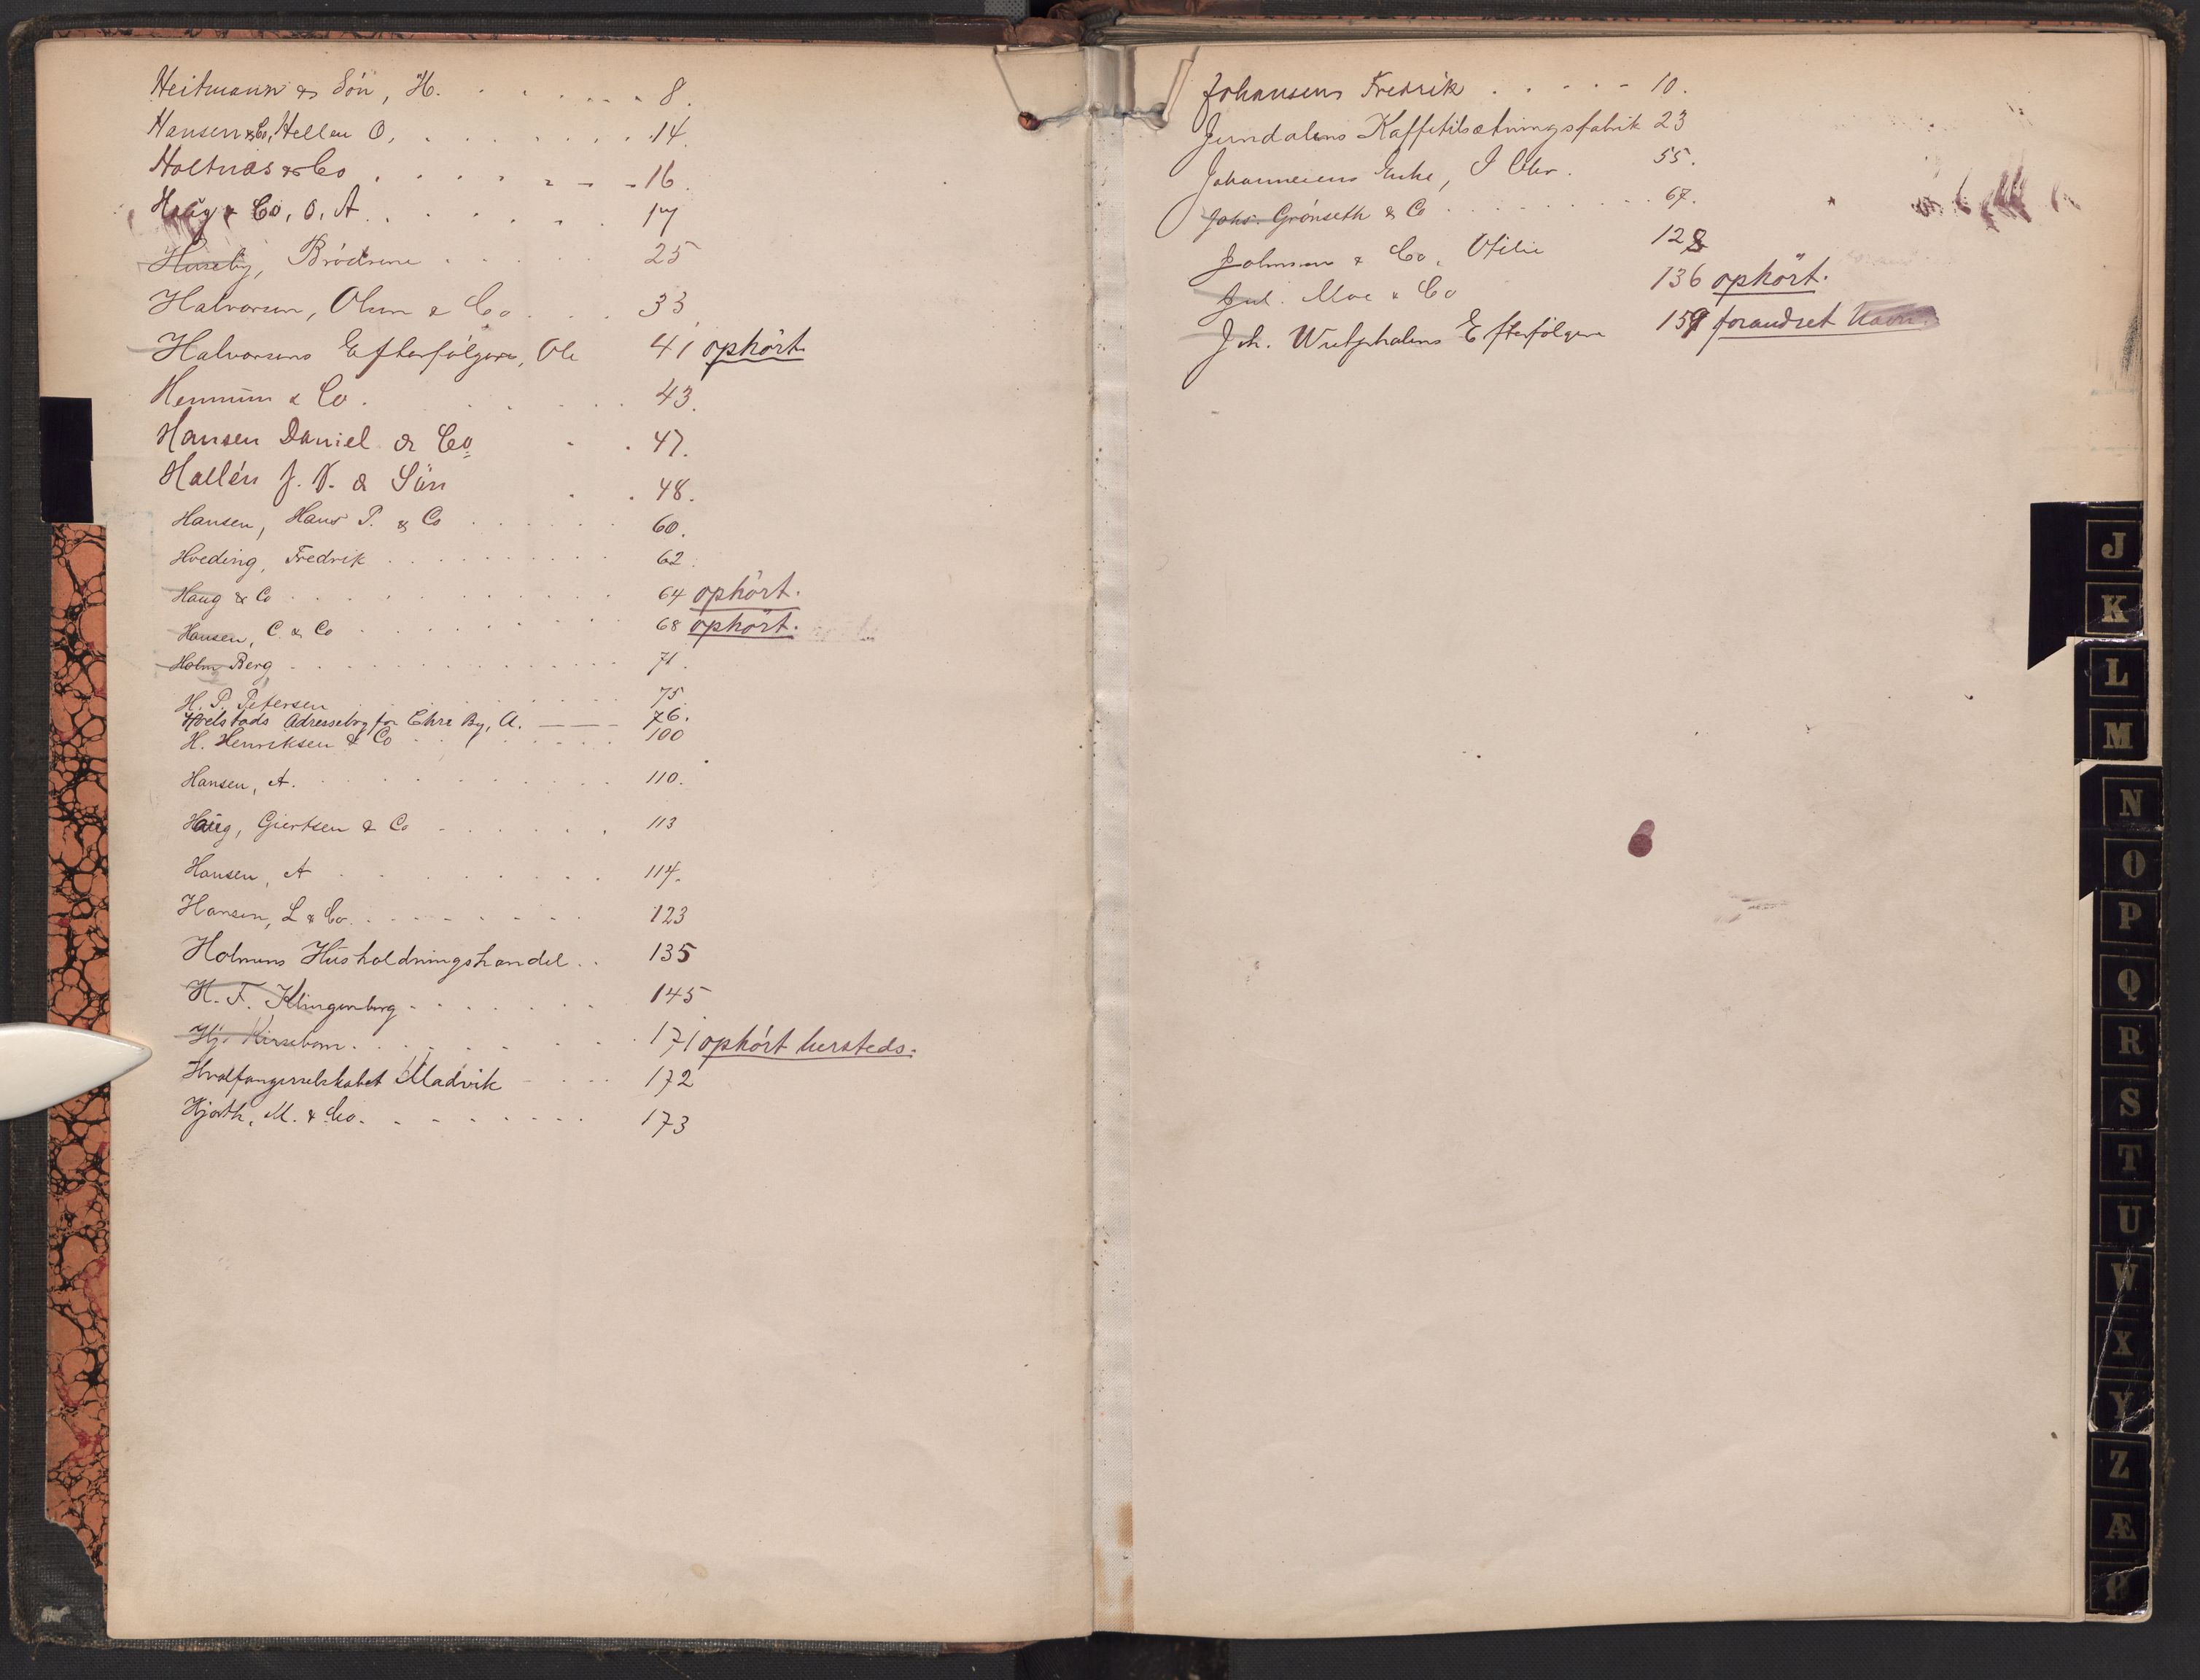 Heitmann & Sön, H. 8.
Hansen & Co, Hellen O. 14.
Holtnæs & Co 16.
Haug & Co, O. A. 17
Huseby, Brödrene 25
Halvorsen, Olsen & Co 33
Halvorsens Efterfölgere, Ole 41 ophört
Hennum & Co. 43.
Hansen Daniel & Co 47.
Hallén J. N. & Sön 48.
Hansen, Hans P. & Co 60.
Hveding, Fredrik 62.
Haug & Co 64 ophört.
Hansen, C. & Co 68 ophört.
Holm Berg 71.
H. P. Petersen 75.
Hoelstads Adressebog for Chra By, A. 76.
H. Henriksen & Co 100
Hansen, A. 110.
Haug, Giertsen & Co 113
Hansen, A 114.
Hansen, L & Co. 123
Holmens Husholdningshandel 135
H. F. Klingenberg 145
Hj. Kirsebom. 171 ophört hersteds.
Hvalfangerselskabet Madvik 172
Hjorth, M. & Co. 173
Johansens Fredrik 10.
Jerndalens Kaffetilsætningsfabrik 23
Johannesens Enke, I Chr. 55.
Johs. Grönseth & Co 67.
Johnsen & Co, Otilie 128
Jul. Moe & Co 136 ophört.
Joh. Westphalens Efterfölgere 159 forandret Navn.
J
K
L
M
N
O
P
Q
R
S
T
U
W
X
Y
Z
Æ
Ø